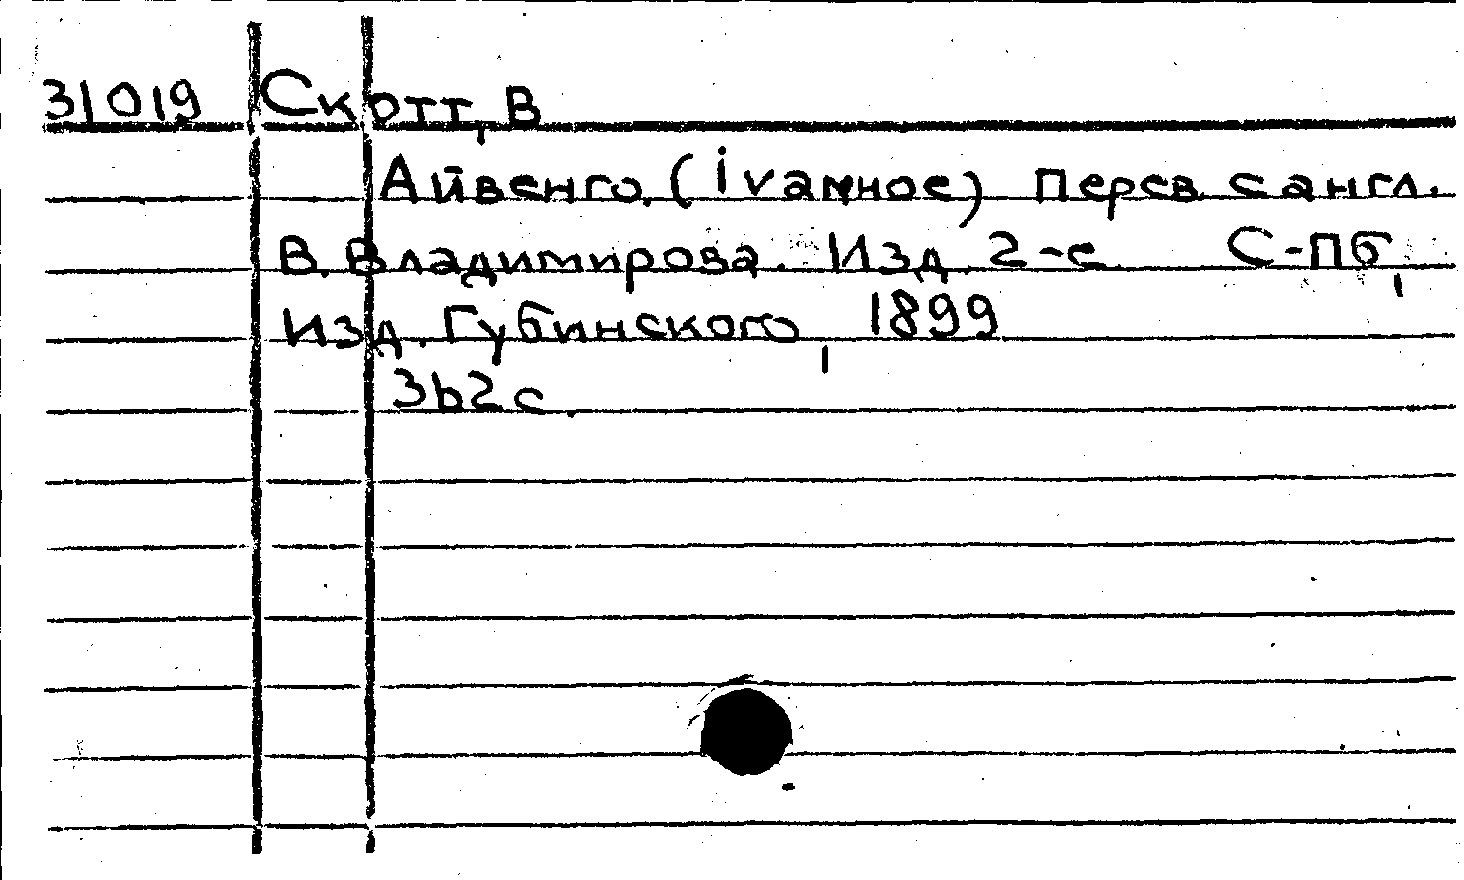 31019 Скотт, В
Айвенго. (ivanhoe) Перев. с англ.
В. Владимирова. Изд. 2-е С-Пб,
Изд. Губинского, 1899
362 с.